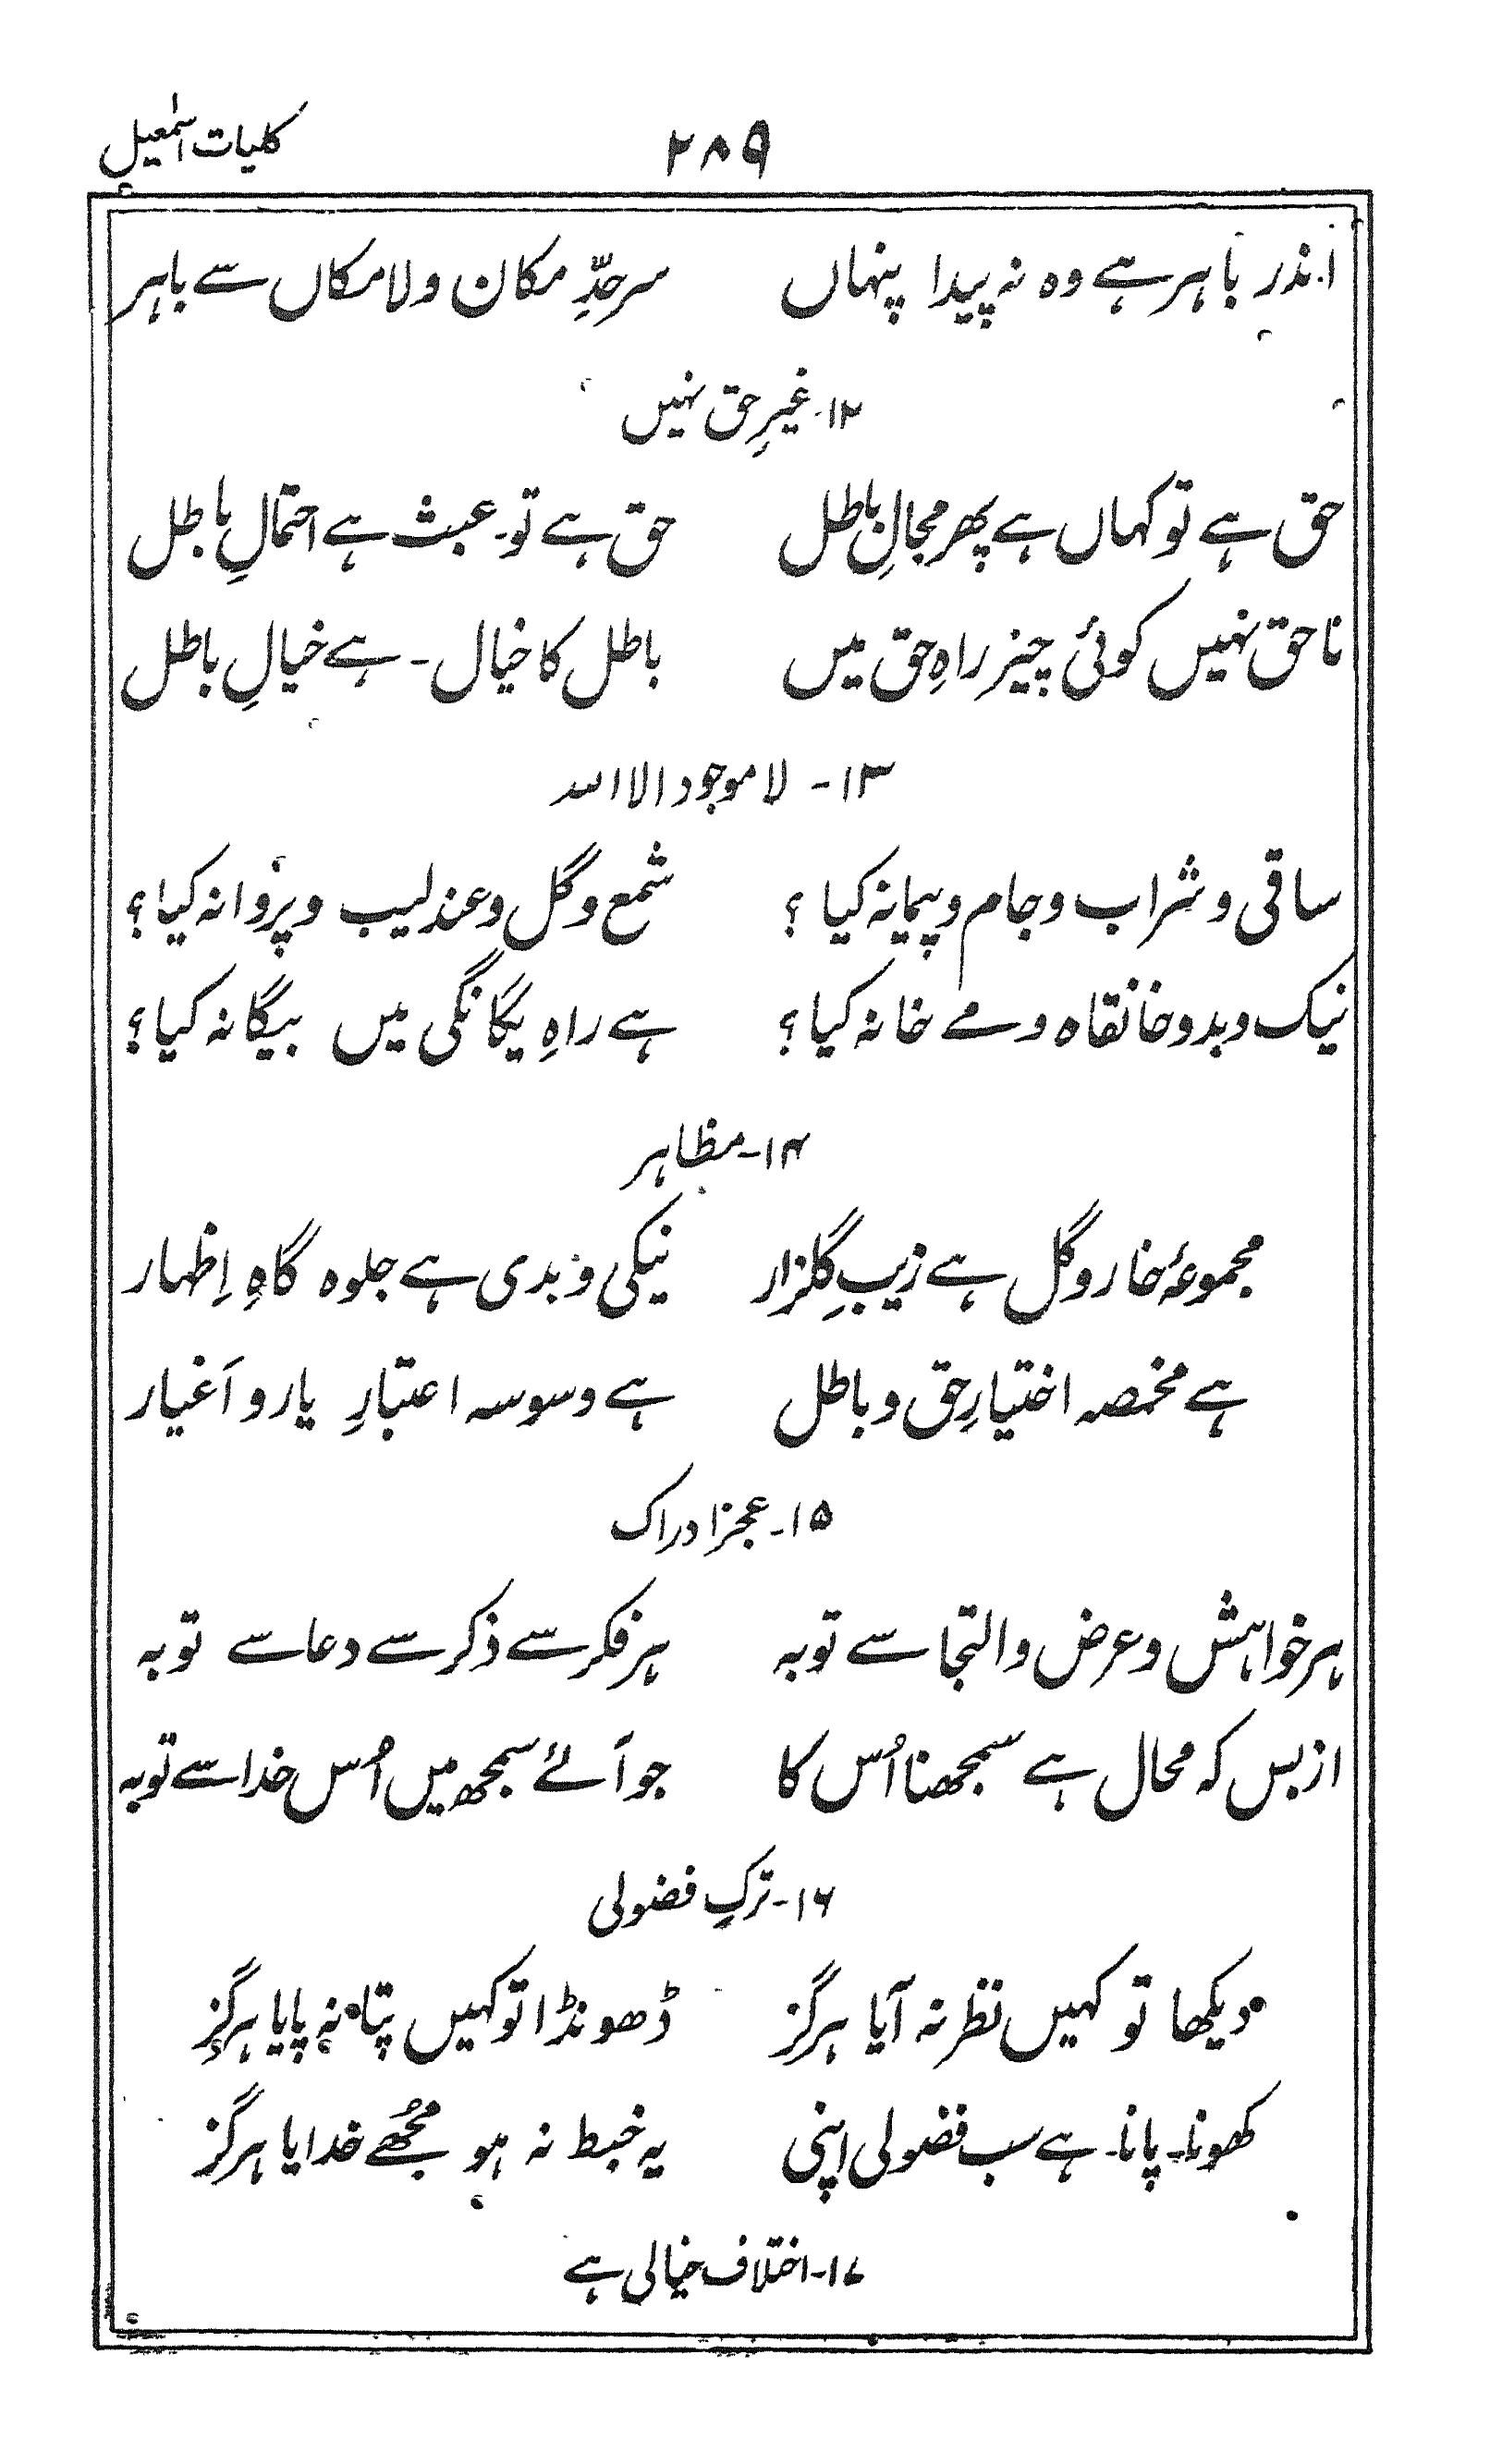 کلیات اسمٰعیل ۲۸۹
اندر باہر ہے وہ نہ پیدا پنہاں سرحدِّ مکان و لامکاں سے باہر
۱۲۔ غیرِ حق نہیں
حق ہے تو کہاں ہے پھر مجالِ باطل حق ہے تو۔ عبث ہے احتمالِ باطل
ناحق نہیں کوئی چیز راہِ حق میں باطل کا خیال۔ ہے خیالِ باطل
۱۳۔ لا موجود الا اللہ
ساقی و شراب و جام و پیمانہ کیا ؟ شمع و گل و عندلیب و پروانہ کیا؟
نیک و بد و خانقاہ و مے خانہ کیا؟ ہے راہِ یگانگی میں بیگانہ کیا؟
۱۴۔ مظاہر
مجموعۂ خار و گل ہے زیبِ گلزار نیکی و بدی ہے جلوہ گاہِ اِظہار
ہے مخمصہ اختیارِ حق و باطل ہے وسوسہ اعتبارِ یار و اَغیار
۱۵۔ عجز ادراک
ہر خواہش و عرض و التجا سے توبہ ہر فکر سے ذکر سے دعا سے توبہ
از بس کہ محال ہے سمجھنا اُس کا جو آئے سمجھ میں اُس خدا سے توبہ
۱۶۔ ترکِ فضولی
دیکھا تو کہیں نظر نہ آیا ہرگز ڈھونڈا تو کہیں پتا نہ پایا ہرگز
کھونا۔ پانا۔ ہے سب فضولی اپنی یہ خبط نہ ہو مجُھے خدایا ہرگز
۱۷۔ اختلاف خیالی ہے